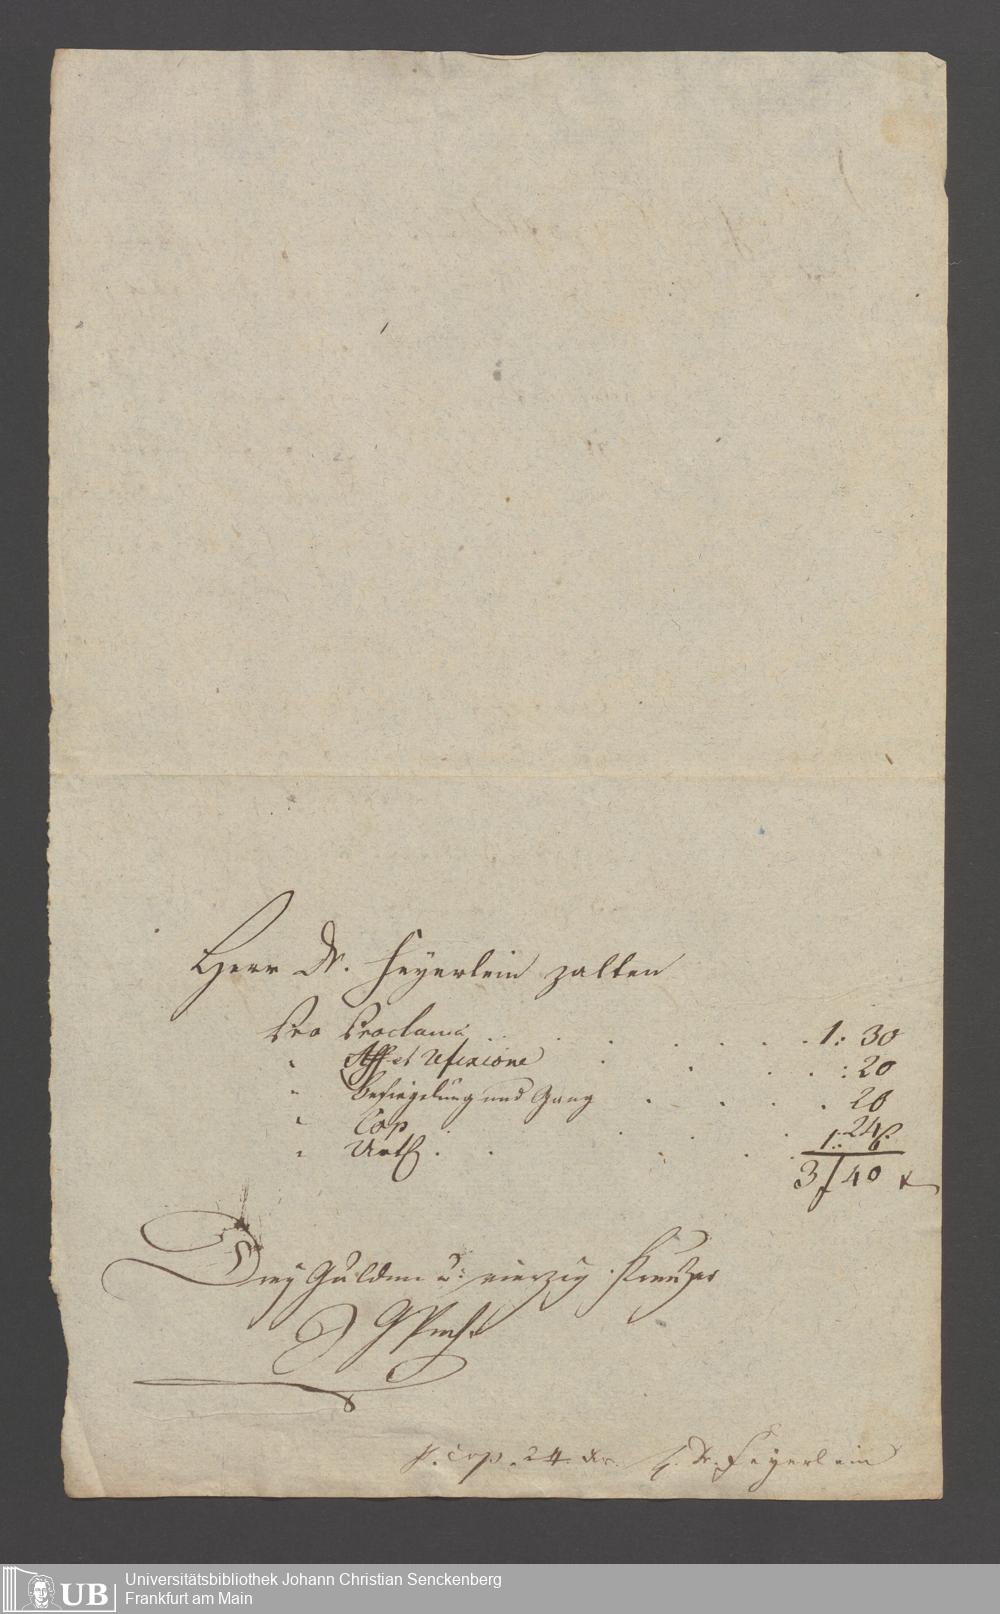 Herr Dr. Feyerlein zalten
Pro Proclama . . . . . . 1: 30
" Aff et Refixione . . . . : 20
" Besiegelung und Gang . . . . 20
" Cop . . . . 24
" Urth . . . . 1: 6
3 f 40 x
Drey Gulden u: vierzig Kreutzer
p. Cop. 24 xr. H. Dr. Feyerlein
UB Universitätsbibliothek Johann Christian Senckenberg
Frankfurt am Main